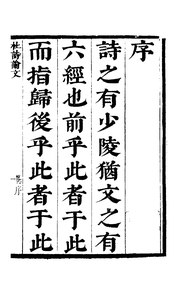 序
詩之有少陵猶文之有
六經也前乎此者于此
而指歸後乎此者于此
杜詩論文
序